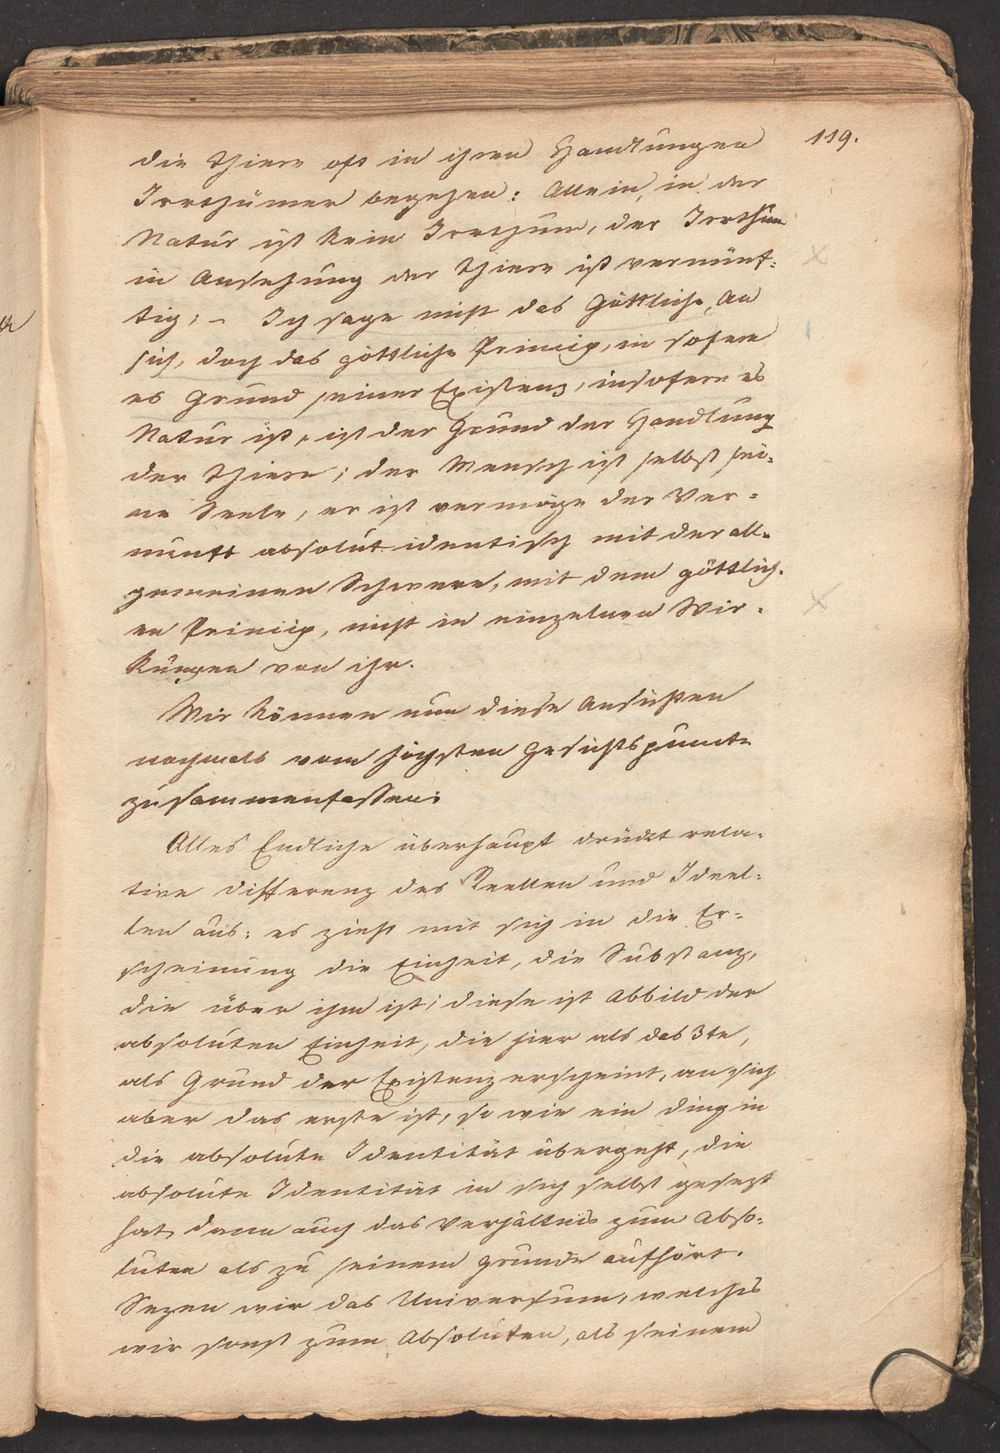 119.
die Thiere oft in ihren Handlungen
Irrthümer begehen: Allein, in der
Natur ist kein Irrthum, der Irrthum
in Ansehung der Thiere ist vernünf-
tig; – Ich sage nicht das Göttliche an
sich, doch das göttliche Princip, in sofern
es Grund seiner Existenz, insofern es
Natur ist, ist der Grund der Handlung
der Thiere; der Mensch ist selbst sei-
ne Seele, er ist vermöge der Ver-
nunft absolut identisch mit der all-
gemeinen Schwere, mit dem göttlich-
en Princip, nicht in einzelnen Wir-
kungen von ihr.
Wir können nun diese Ansichten
nochmals vom höchsten Gesichtspuncte
zusammenfassen:
Alles Endliche überhaupt drückt rela-
tive Differenz des Reellen und Ideel-
len aus: es zieht mit sich in die Er-
scheinung die Einheit, die Substanz,
die über ihm ist; diese ist Abbild der
absoluten Einheit, die hier als das 3te,
als Grund der Existenz erscheint, an sich
aber das erste ist, so wie ein Ding in
die absolute Identität übergeht, die
absolute Identität in sich selbst gesezt
hat, dann auch das Verhältnis zum Abso-
luten als zu seinem Grunde aufhört.
Sezen wir das Universum, welches
wir sonst zum Absoluten, als seinem